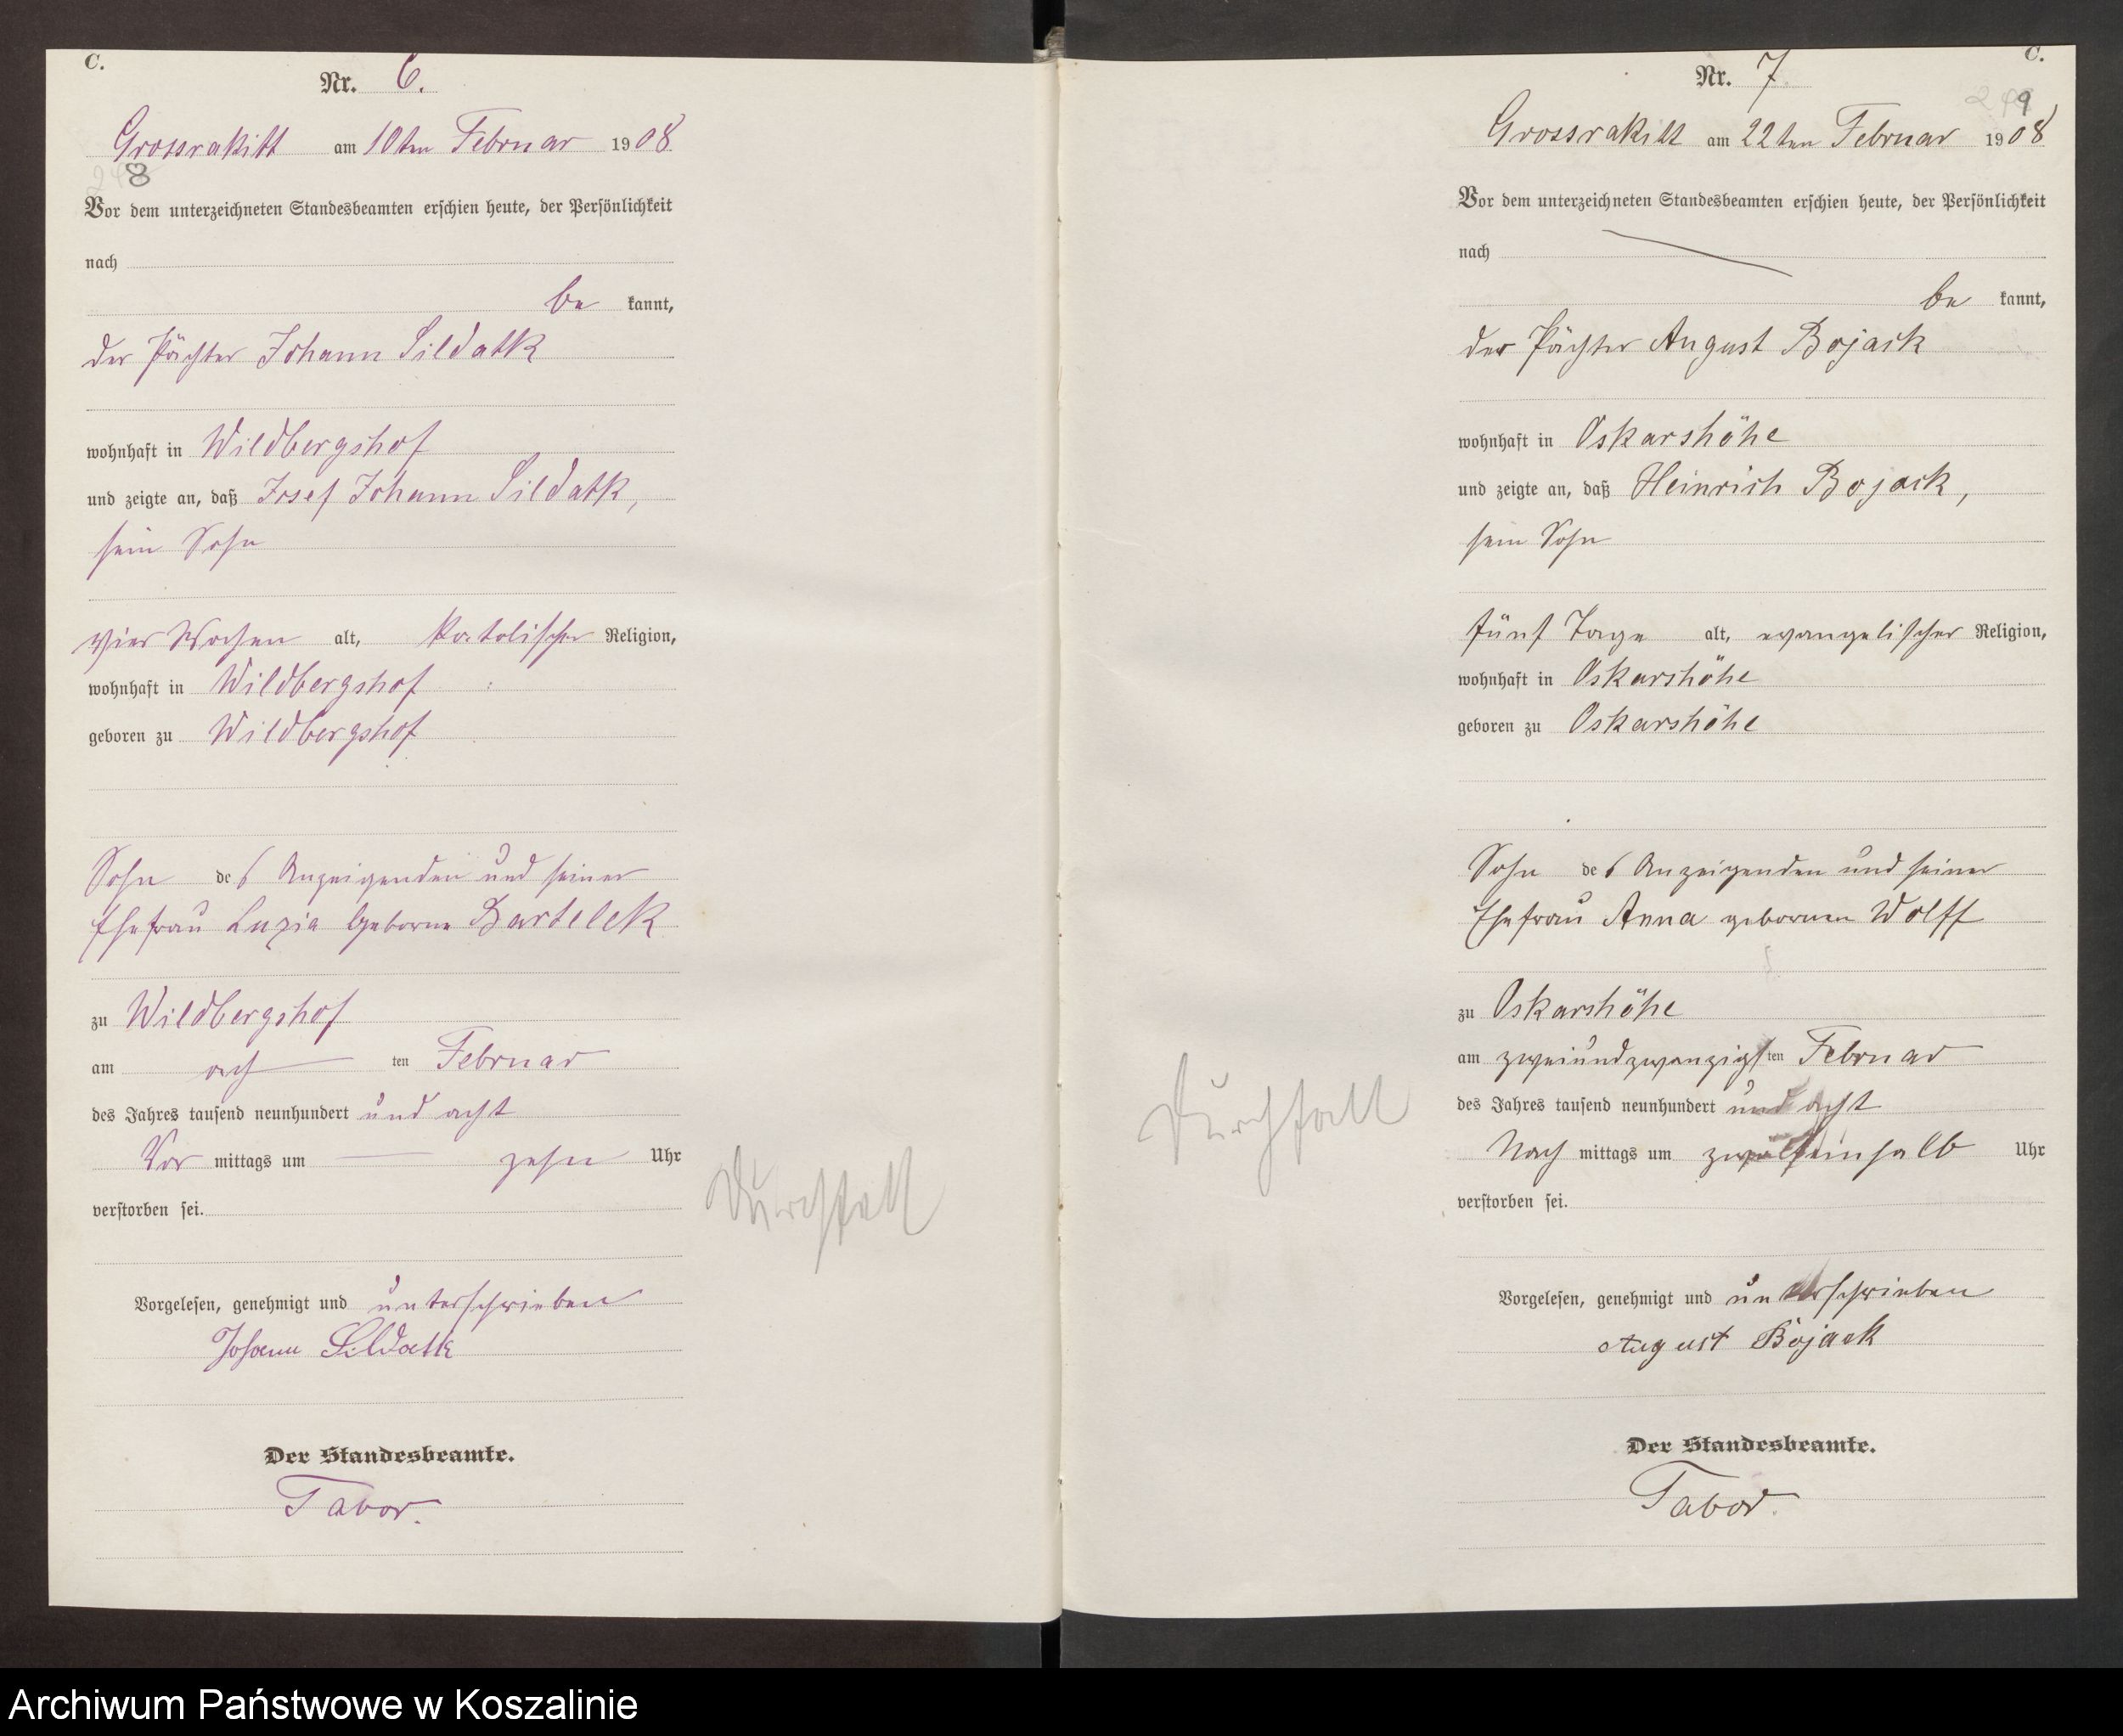 C.
Nr. 6.
Grossrakitt am 10ten Februar 1908
8
Vor dem unterzeichneten Standesbeamten erschien heute, der Persönlichkeit
nach
be kannt,
der Pächter Johann Sildatk
wohnhaft in Wildbergshof
und zeigte an, daß Josef Johann Sildatk,
sein Sohn
vier Wochen alt, katolischer Religion,
wohnhaft in Wildbergshof
geboren zu Wildbergshof
Sohn des Anzeigenden und seiner
Ehefrau Luzia geborne Bartelek
zu Wildbergshof
am ach ten Februar
des Jahres tausend neunhundert und acht
Vor mittags um zehn Uhr
verstorben sei.
Vorgelesen, genehmigt und unterschrieben
Johann Sildatk
Der Standesbeamte.
Tabor.
Durchfall
C.
Nr. 7
9
Grossrakitt am 22ten Februar 1908
Vor dem unterzeichneten Standesbeamten erschien heute, der Persönlichkeit
nach
be kannt,
der Pächter August Bojack
wohnhaft in Oskarshöhe
und zeigte an, daß Heinrich Bojack,
sein Sohn
fünf Tage alt, evangelischer Religion,
wohnhaft in Oskarshöhe
geboren zu Oskarshöhe
Sohn des Anzeigenden und seiner
Ehefrau Anna gebornen Wolff
zu Oskarshöhe
am zweiundzwanzigsten Februar
des Jahres tausend neunhundert und acht
Nach mittags um zwölfeinhalb Uhr
verstorben sei.
Vorgelesen, genehmigt und unterschrieben
August Bojack
Der Standesbeamte.
Tabor.
Durchfall
Archiwum Państwowe w Koszalinie